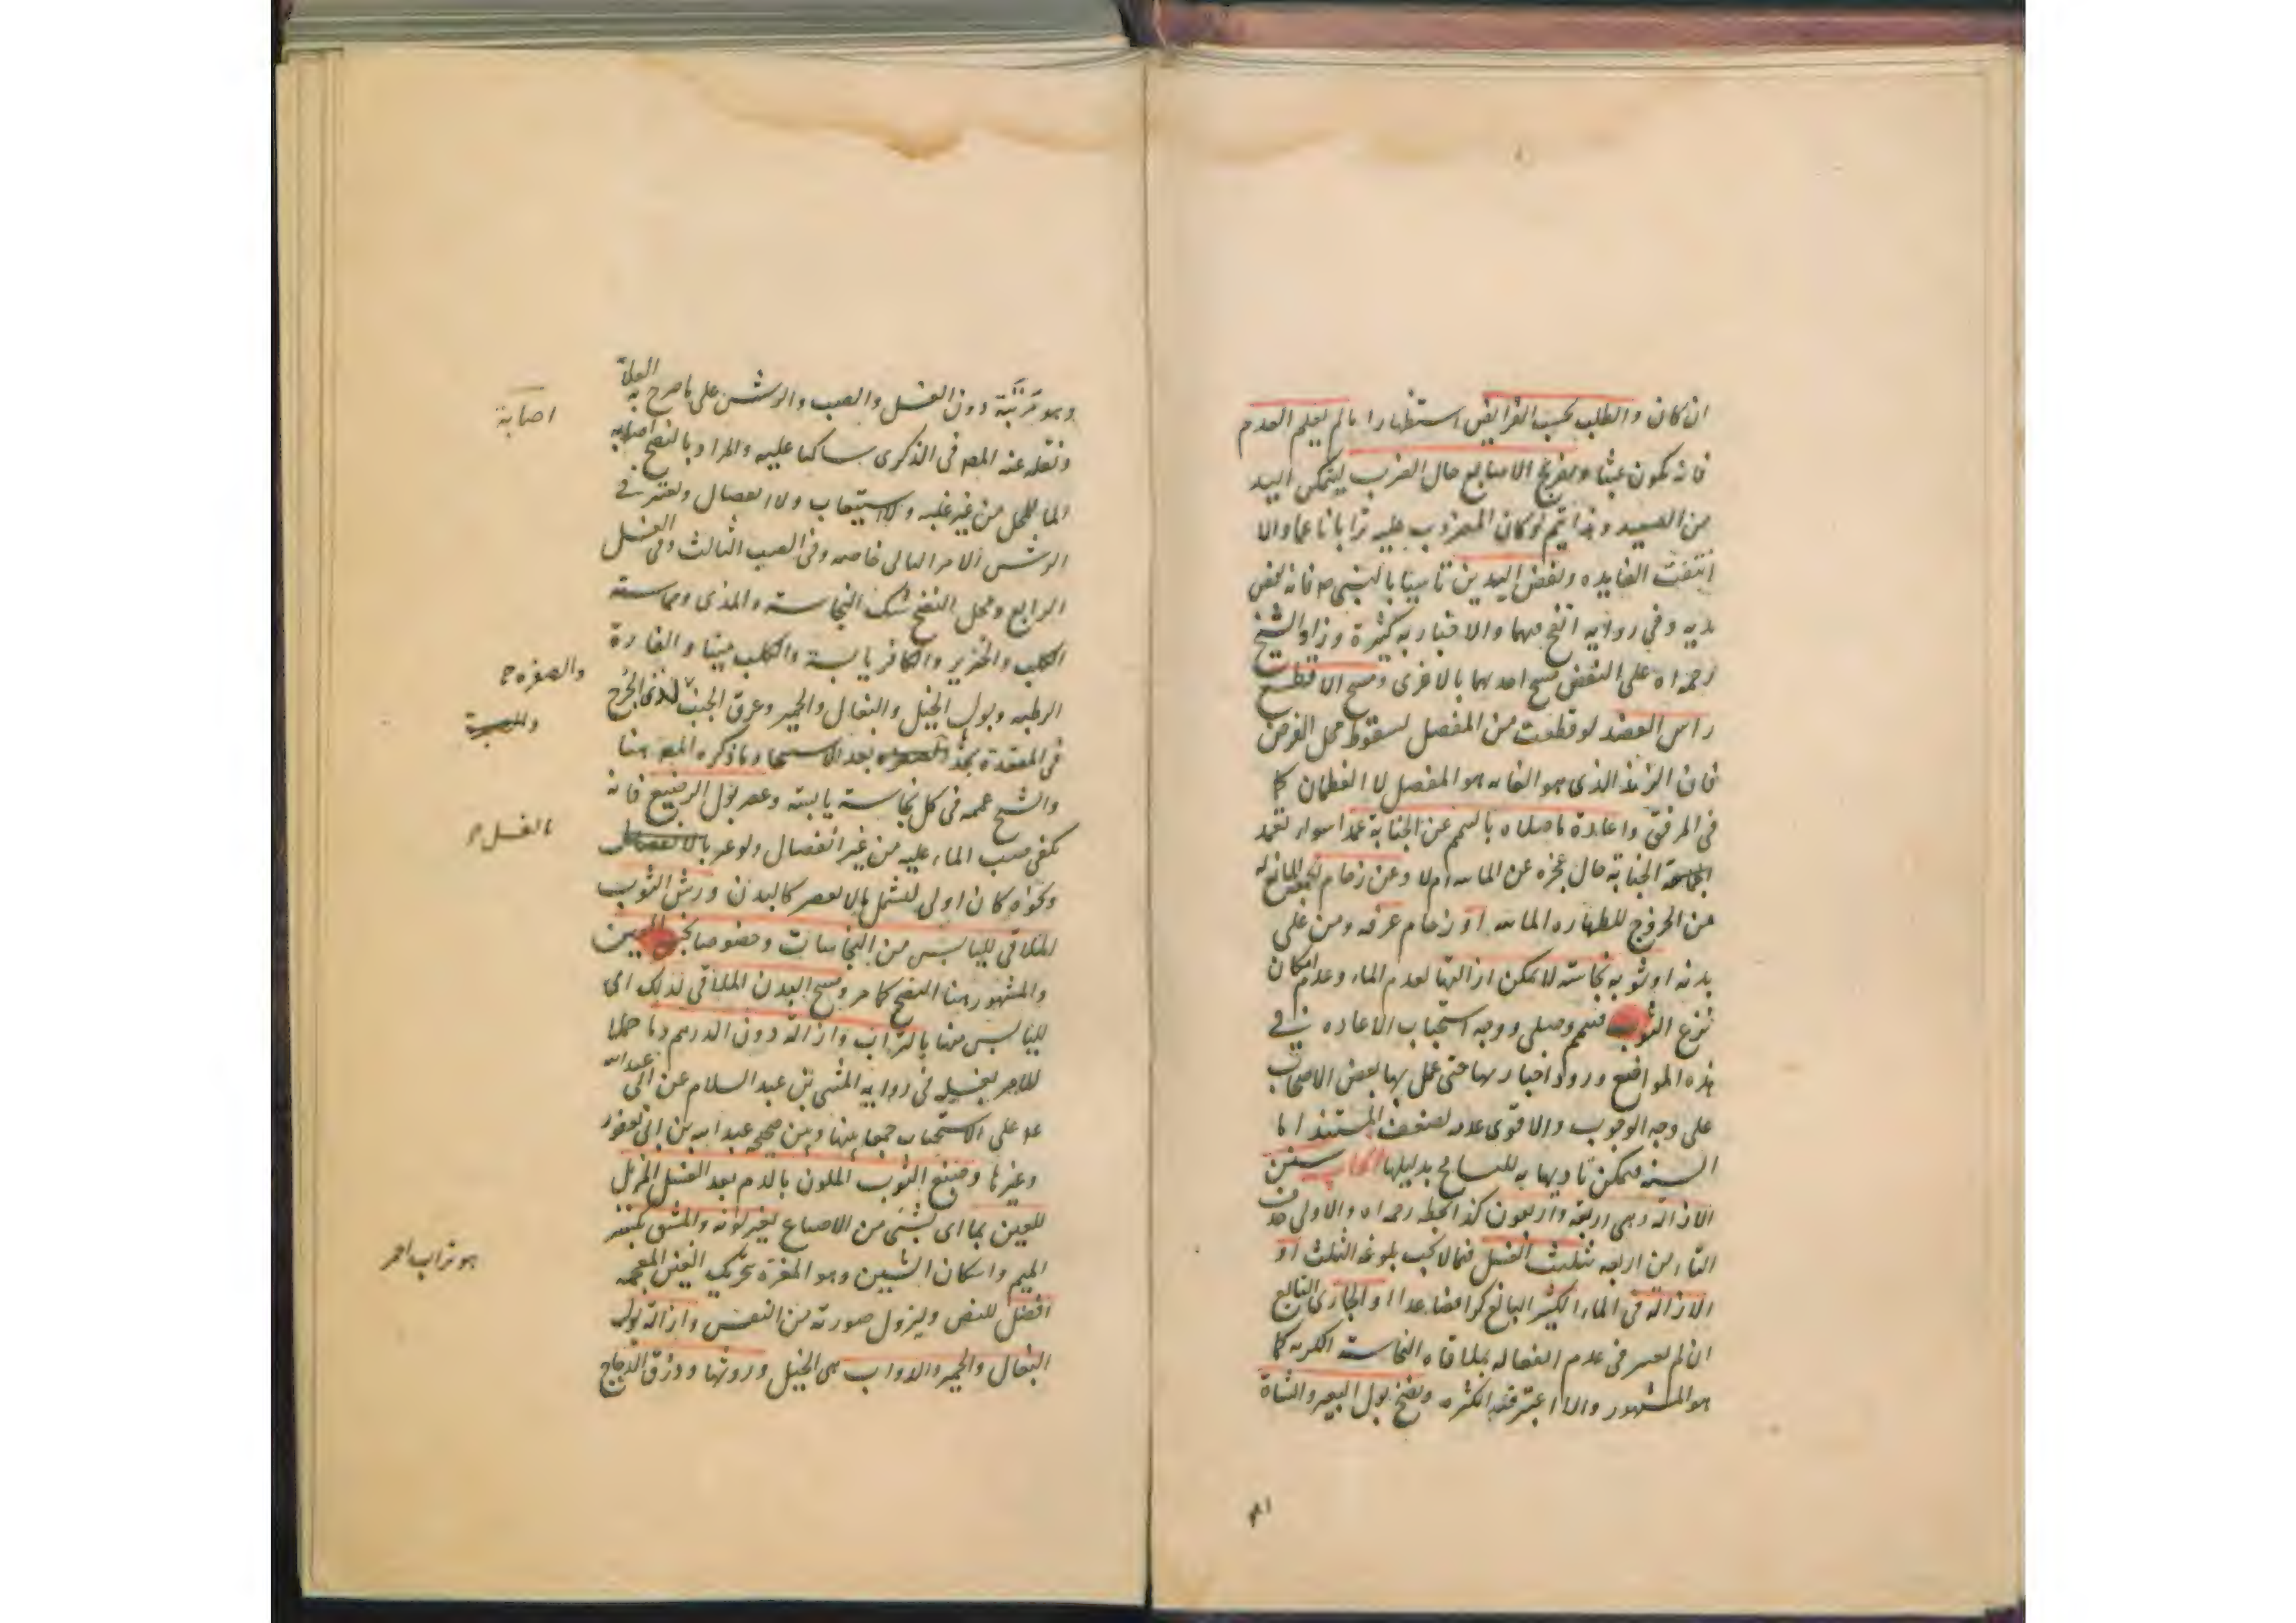 ان كان والطلب بحسب القرايض استظهارا ما لم يعلم العدم
فانه يكون عبثا وتفريج الاصابع حال الضرب ليتمكن اليد
من الصعيد وهذا يتم لو كان المضروب عليه ترابا ناعما والا
انتفت الفايده ونفض اليدين تاسيا بالنبي ص فانه نفض
يديه وفي روايه انفخ فيهما والاخبار به كثيرة وزاد الشيخ
رحمه اه على النفض مسح احديهما بالاخرى ومسح الاقطع
راس العضد لو قطعت من المفصل لسقوط محل الفرض
فان الزند الذى هو الغايه هو المفصل لا العظمان كما
فى المرفق واعادة ما صلاه بالتيمم عن الجنابة عمدا سواء تعمد
الجنابة حال عجزه عن الماء ام لا وعن زحام الجمعه المانع له
من الخروج للطهاره المائيه او زحام عرفه ومن على
بدنه او ثوبه نجاسته لا يمكن ازالتها لعدم الماء وعدم امكان
نزع الثوب فتيمم وصلى ووجه استحباب الاعاده فى
هذه المواضع ورود اخبار بها حتى عمل بها بعض الاصحاب
على وجه الوجوب والاقوى عدمه لضعف المستند اما
السنه فيمكن تاديها به للتسامح بدليلها سنن
الازالة وهى اربعة واربعون كذا بخطه رحمه اه والاولى حذف
التاء من اربعه تثليث الغسل فيما لا يجب بلوغه الثلث او
الازالة فى الماء الكثير البالغ كرا فصاعدا او الجارى النابع
ان لم نعتبر فى عدم انفعاله بملاقاه النجاسة الكريه كما
هو المشهور والا اعتبر فيه الكثره ونضح بول البعير والشاة
وهو مرتبة دون الغسل والصب والرش على ما صرح به العلامة
ونقله عنه المصه فى الذكرى ساكتا عليه والمراد بالنضح اصابه
الماء للمحل من غير غلبه ولا استيعاب ولا انفصال ويعتبر فى
الرش الامر الثانى خاصه وفى الصب الثالث وفى الغسل
الرابع ومحل النضح شك النجاسة والمذى ومماسة
الكلب والخنزير والكافر يابسة والكلب ميتا والفارة
الرطبه وبول الخيل والبغال والحمير وعرق الجنب وذى الجرح
فى المقعدة يجد بعد الاستنجا وما ذكره المصه هنا
والشيخ عممه فى كل نجاسة يابسة وعصر بول الرضيع فانه
يكفى صب الماء عليه من غير انفصال ولو عبر بالانفصال
ونحوه كان اولى ليشمل ما لا يعصر كالبدن ورش الثوب
الملاقى لليابس من النجاسات وخصوصا نجس العين
والمشهور هنا النضح كما مر ومسح البدن الملاقى لذلك اى
لليابس منها بالتراب وازالة دون الدرهم دما حملا
للامر بغسله فى روايه المثنى بن عبد السلام عن ابى عبد الله
ع على الاستحباب جمعا بينها وبين صحيحه عبد الله بن ابى يعفور
وغيرها وصبغ الثوب الملون بالدم بعد الغسل المزيل
للعين بما اى بشىء من الاصباغ يغير لونه والمشق بكسر
الميم واسكان الشين وهو المغرة بتحريك الغين المعجمه
افضل للنص ويزول صورته من النفس وازالة بول
البغال والحمير والدواب هى الخيل وروثها وذرق الدجاج
اصابة
والصفره
بالغسل
هو تراب احمر